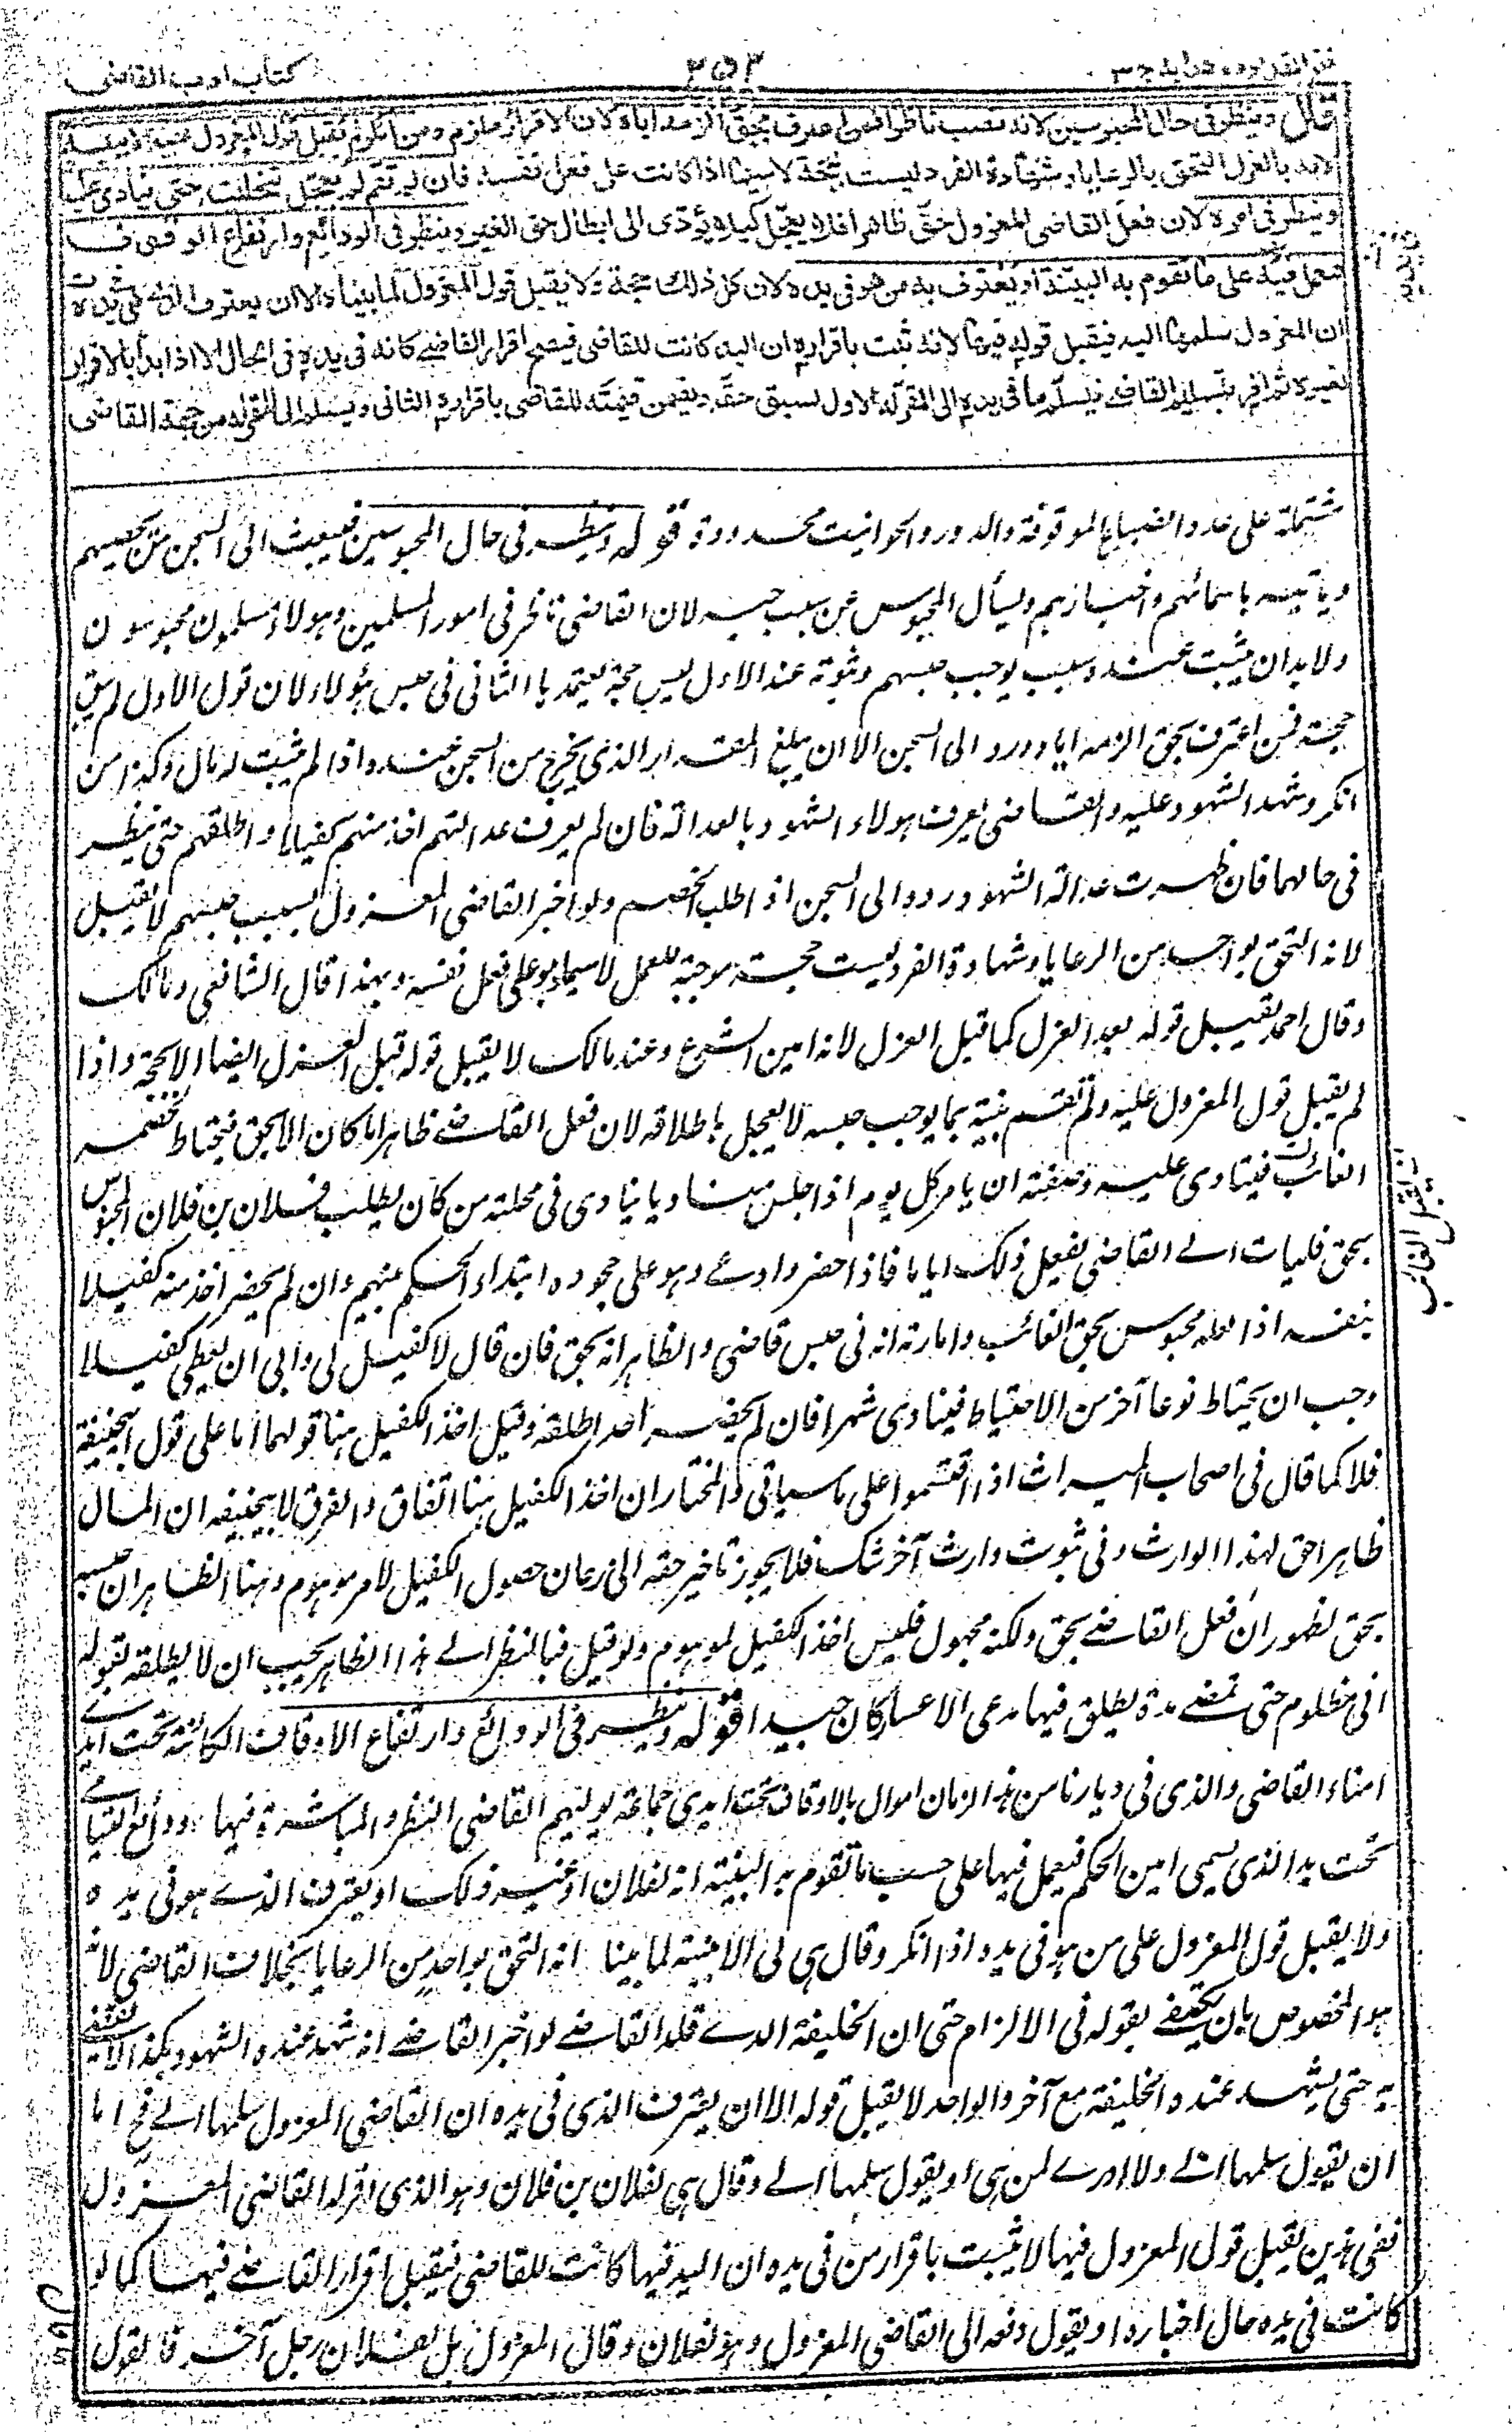 فتح القدير مع هدايه ج ٣
٢٥٣
كتاب ادب القاضى
قال وينظر فى حال المحبوسين لانه نصب ناظرا فمن اعترف بحق الزمه اياه لان الاقرار ملزم ومن انكر لم يقبل قول المعزول عليه الا ببينة
لانه بالعزل التحق بالرعايا وشهادة الفرد ليست بحجة لاسيما اذا كانت على فعل نفسه فان لم تقم لم يعجل بتخليته حتى ينادى عليه
وينظر فى امره لان فعل القاضى المعزول حق ظاهرا فلا يعجل كيلا يؤدى الى ابطال حق الغير وينظر فى الودائع وارتفاع الوقوف
فيعمل فيه على ما تقوم به البينة او يعترف به من هو فى يده لان كل ذلك حجة ولا يقبل قول المعزول لما بيناه الا ان يعترف الذى هى فى يده
ان المعزول سلمها اليه فيقبل قوله فيها لانه ثبت باقراره ان اليد كانت للقاضى فيصح اقرار القاضى كانه فى يده فى الحال الا اذا بدأ بالاقرار
لغيره ثم اقر بتسليم القاضى فيسلم ما فى يده الى المقر له الاول لسبق حقه ويضمن قيمته للقاضى باقراره الثانى ويسلم الى المقر له من جهة القاضى
مشتملة على عدد الضياع الموقوفة والدور والحوانيت محدودة قوله وينظر فى حال المحبوسين فيبعث الى السجن من يحصيهم
وياتيه باسمائهم واخبارهم ويسأل المحبوس عن سبب حبسه لان القاضى ناظر فى امور المسلمين وهولاء مسلمون محبوسون
ولا بد ان يثبت عنده سبب يوجب حبسهم وثبوته عند الاول ليس حجة يعتمد بها الثانى فى حبس هؤلاء لان قول الاول لم يبق
حجة فمن اعترف بحق الزمه اياه ورده الى السجن الا ان يبلغ المقدار الذى يخرج من السجن عنده اذا لم يثبت له مال وكذا من
انكر وشهد الشهود عليه والقاضى يعرف هولاء الشهود بالعدالة فان لم يعرف عدالتهم اخذ منهم كفيلا واطلقهم حتى ينظر
فى حالهما فان ظهرت عدالة الشهود ردوا الى السجن اذا طلب الخصم ولو اخبر القاضى المعزول بسبب حبسهم لا يقبل
لانه التحق بواحد من الرعايا وشهادة الفرد ليست حجة موجبة للعمل لاسيما وهو على فعل نفسه وبهذا قال الشافعى ومالك
وقال احمد يقبل قوله بعد العزل كما قبل العزل لانه امين الشرع وعند مالك لا يقبل قوله قبل العزل ايضا الا بحجة واذا
لم يقبل قول المعزول عليه ولم تقم بينة بما يوجب حبسه لا يعجل باطلاقه لان فعل القاضى ظاهرا ما كان الا بحق فيحتاط لخصمه
الغائب فينادى عليه وصفته ان يامر كل يوم اذا جلس مناديا ينادى فى محلته من كان يطلب فلان بن فلان المحبوس
بحق فليات الى القاضى يفعل ذلك اياما فاذا حضر وادعى وهو على جحوده ابتداء الحكم بينهم وان لم يحضر اخذ منه كفيلا
بنفسه اذ لعله محبوس بحق الغائب وامارته انه فى حبس قاضى والظاهر انه بحق فان قال لا كفيل لى وابى ان يعطى كفيلا
وجب ان يحتاط نوعا آخر من الاحتياط فينادى شهرا فان لم يحضر احد اطلقه وقيل اخذ الكفيل هنا قولهما اما على قول ابيحنيفة
فلا كما قال فى اصحاب الميراث اذا اقتسموا على ما سياتى والمختار ان اخذ الكفيل هنا اتفاق والفرق لابيحنيفه ان المال
ظاهرا حق لهذا الوارث وفى ثبوت وارث آخر شك فلا يجوز تاخير حقه الى زمان حصول الكفيل لامر موهوم وهنا الظاهر ان حبسه
بحق لظهور ان فعل القاضى بحق ولكنه مجهول فليس اخذ الكفيل لموهوم ولو قيل فبالنظر الى هذا الظاهر يجب ان لا يطلقه بقوله
انى مظلوم حتى تمضى مدة يطلق فيها مدعى الاعسار كان جيدا قوله وينظر فى الودائع وارتفاع الاوقاف الكائنة تحت ايدى
امناء القاضى والذى فى ديارنا من هذا الزمان اموال بالاوقاف تحت ايدى جماعة يوليهم القاضى النظر والمباشرة فيها وودائع اليتامى
تحت يد الذى يسمى امين الحكم فيعمل فيها على حسب ما تقوم به البينة انه لفلان او غير ذلك او يعترف الذى هو فى يده
ولا يقبل قول المعزول على من هو فى يده اذا انكر وقال هى لى الا ببينة لما بينا انه التحق بواحد من الرعايا بخلاف القاضى لانه
هو المخصوص بان يكتفى بقوله فى الالزام حتى ان الخليفة الذى قلد القاضى لو اخبر القاضى انه شهد عنده الشهود بكذا لا يقضى
به حتى يشهد عنده الخليفة مع آخر والواحد لا يقبل قوله الا ان يعترف الذى فى يده ان القاضى المعزول سلمها الى فح اما
ان يقول سلمها الى ولا ادرى لمن هى او يقول سلمها الى وقال هى لفلان بن فلان وهو الذى اقر له القاضى المعزول
ففى هذين يقبل قول المعزول فيها لانه ثبت باقرار من فى يده ان اليد فيها كانت للقاضى فيقبل اقرار القاضى فيها كما لو
كانت فى يده حال اخباره او يقول دفعه الى القاضى المعزول وهو لفلان وقال المعزول بل لفلان رجل آخر فالقول